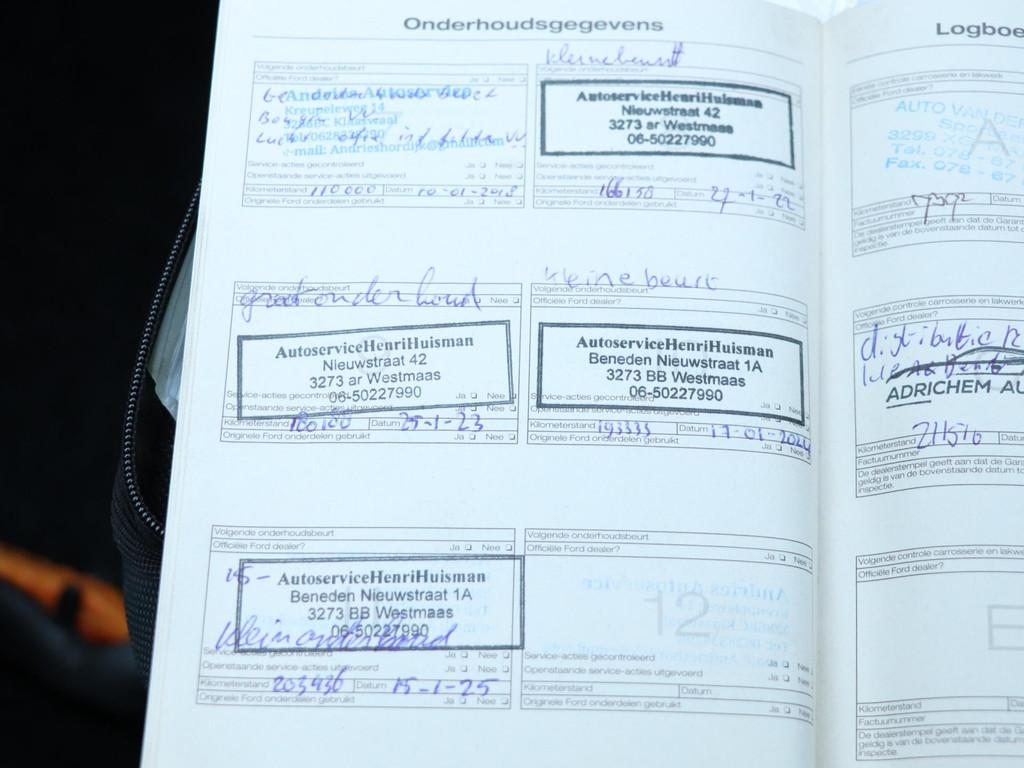 Onderhoudsgegevens
Volgende onderhoudsbeurt
Officiële Ford dealer? Ja Nee
Andries Autoservice
Kreupeleweg 14
Klaaswaal
e-mail: Andrieshordijk@gmail.com
Service-acties gecontroleerd
Openstaande service-acties uitgevoerd Ja Nee
Kilometerstand 110000 Datum 10-01-2018
Originele Ford onderdelen gebruikt Ja Nee
kleine beurt
Volgende onderhoudsbeurt
AutoserviceHenriHuisman
Nieuwstraat 42
3273 ar Westmaas
06-50227990
Service-acties gecontroleerd
Openstaande service-acties uitgevoerd
Kilometerstand 166150 Datum 27-1-22
Originele Ford onderdelen gebruikt Ja Nee
groot onderhoud
Volgende onderhoudsbeurt
Nee
AutoserviceHenriHuisman
Nieuwstraat 42
3273 ar Westmaas
06-50227990
Service-acties gecontroleerd
Openstaande service-acties uitgevoerd Ja Nee
Kilometerstand Datum 25-1-23
Originele Ford onderdelen gebruikt Ja Nee
kleine beurt
Volgende onderhoudsbeurt
Officiële Ford dealer? Ja Nee
AutoserviceHenriHuisman
Beneden Nieuwstraat 1A
3273 BB Westmaas
06-50227990
Service-acties gecontroleerd
Openstaande service-acties uitgevoerd
Kilometerstand 193333 Datum 17-01-2024
Originele Ford onderdelen gebruikt Ja Nee
Volgende onderhoudsbeurt
Officiële Ford dealer? Ja Nee
AutoserviceHenriHuisman
Beneden Nieuwstraat 1A
3273 BB Westmaas
06-50227990
klein onderhoud
Service-acties gecontroleerd
Openstaande service-acties uitgevoerd Ja Nee
Kilometerstand 203436 Datum 15-1-25
Originele Ford onderdelen gebruikt Ja Nee
Volgende onderhoudsbeurt
Officiële Ford dealer? Ja Nee
12
Service-acties gecontroleerd Ja Nee
Openstaande service-acties uitgevoerd Ja Nee
Kilometerstand Datum
Originele Ford onderdelen gebruikt Ja Nee
Logboe
Eerste controle carrosserie en lakwerk
Officiële Ford dealer?
AUTO VAN DER
A
3299
Tel. 078 - 67
Fax. 078 - 67
Kilometerstand Datum
Factuurnummer
De dealerstempel geeft aan dat de Garan
geldig is van de bovenstaande datum tot
inspectie.
Volgende controle carrosserie en lakwerk
Officiële Ford dealer?
distributie
ADRICHEM AU
Kilometerstand 211516 Datum
Factuurnummer
De dealerstempel geeft aan dat de Gara
geldig is van de bovenstaande datum to
inspectie.
Volgende controle carrosserie en lakwe
Officiële Ford dealer?
E
Kilometerstand
Factuurnummer
De dealerstempel geeft aan dat de Gara
geldig is van de bovenstaande datum t
inspectie.